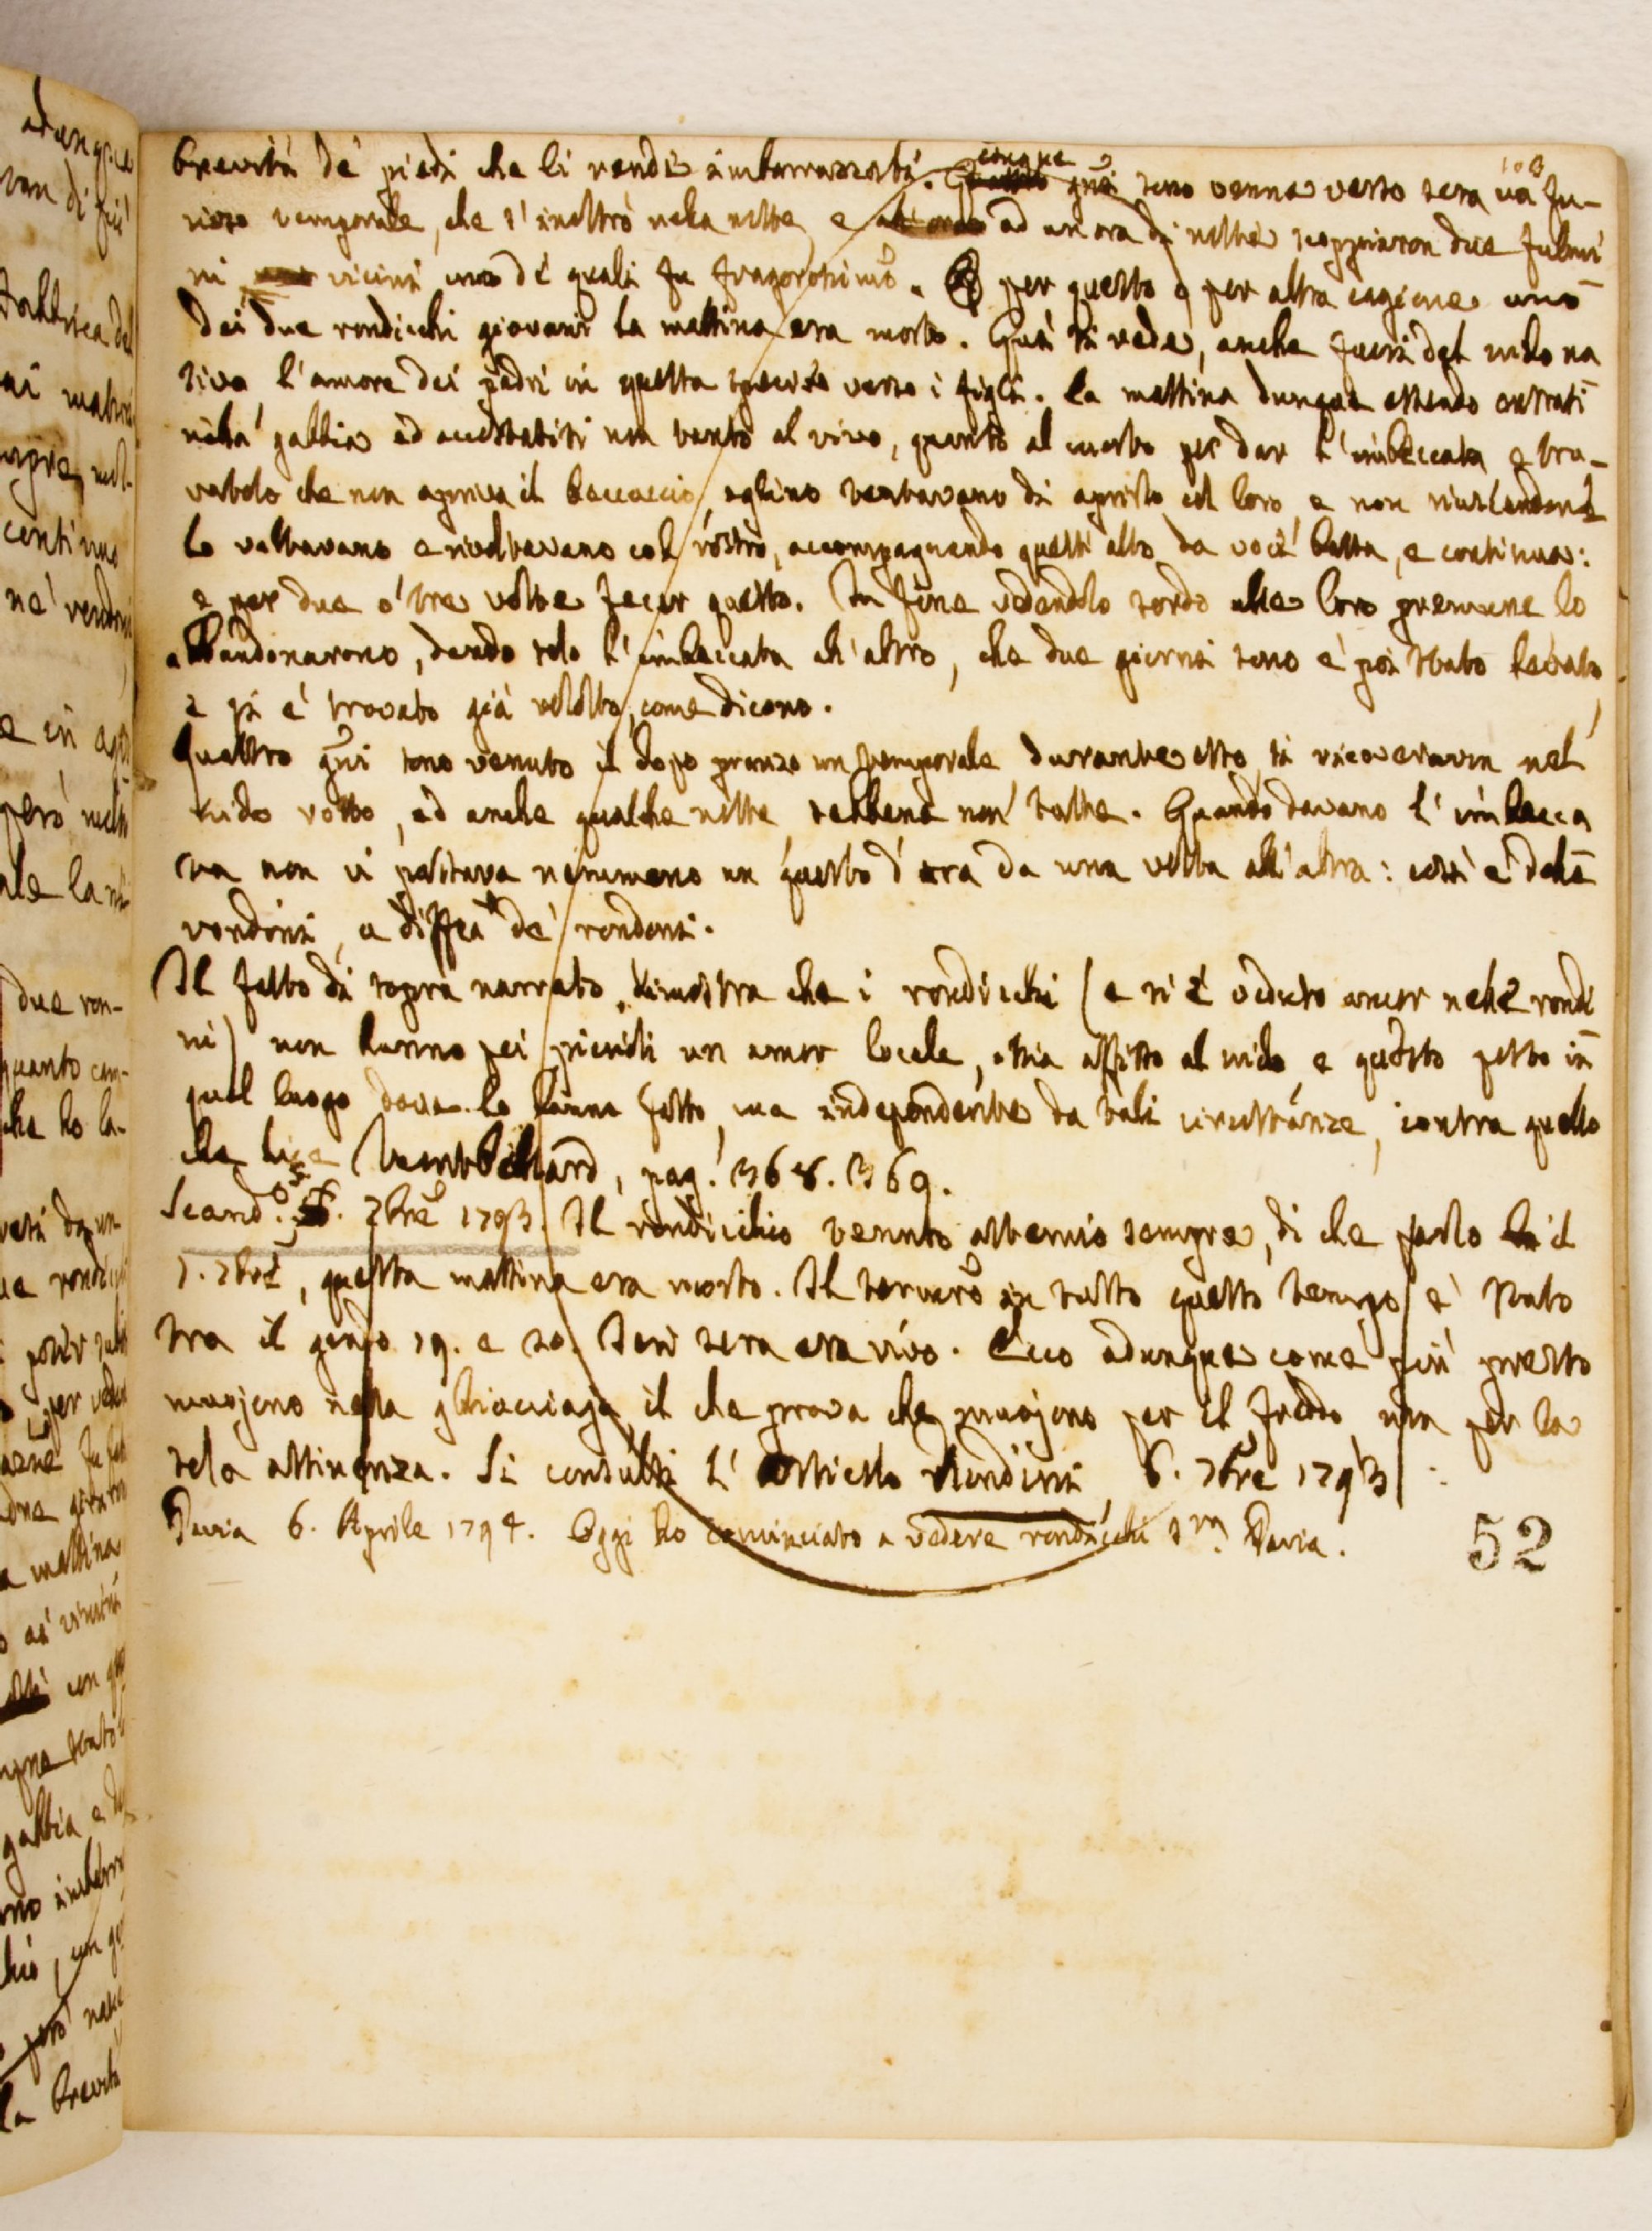 103
brevità de' piedi che li rende imbarazzati. cinque gni sono venne verso sera un fu-
rioso temporale, che s'inoltrò nella notte, e ad un'ora di notte scoppiaron due fulmi
ni vicini uno de' quali fu fragorosimo. O per questo o per altra cagione uno
dei due rondicchi giovani la mattina era morto. Qui si vede, anche fuori del nido na
tivo l'amore dei padri in questa specie verso i figli. La mattina dunque essendo entrati
nella gabbia ed accostatisi non tanto al vivo, quanto al morto per dar l'imbeccata e tro-
vatolo che non apriva il beccaccio, eglino tentavano di aprirlo col loro, e non riuscendone
lo voltavano e rivoltavano col rostro, accompagnando quest'atto da voce bassa, e continua:
e per due o tre volte fecer questo. In fine vedendolo sordo alle loro premure lo
abbandonarono, dando solo l'imbeccata all'altro, che due giorni sono è poi stato levato,
e si è trovato già volato, come dicono.
Quattro gni sono venuto il dopo pranzo un temporale durante esso si ricoveraron nel
nido rotto, ed anche qualche notte, sebbene non tutte. Quando davano l'imbecca
ta non vi passava nemmeno un quarto d'ora da una volta all'altra: così è delle
rondini, a diffza de' rondoni.
Il fatto di sopra narrato dimostra che i rondicchi (e si è veduto ancor nelle rondi
ni) non hanno pei piccioli un amor locale, ossia affisso al nido, e questo posto in
quel luogo dove lo hanno fatto, ma independente da tali circostanze, contra quello
che dice Montbeillard, pag. 368. 369.
Scand.o 5. 7bre 1793. Il rondicchio tenuto all'ernio sempre, di che parlo il
1. 7bre, questa mattina era morto. Il termro in tutto questo tempo è stato
tra il grado 19. e 20. Ieri sera era vivo. Ecco adunque come più presto
muojono nella ghiacciaja, il che prova che muojono per il freddo, non per la
sola astinenza. Si consulti l'articolo Rondini 6. 7bre 1793
Pavia 6. Aprile 1794. Oggi ho cominciato a vedere rondicchi Pavia.
52